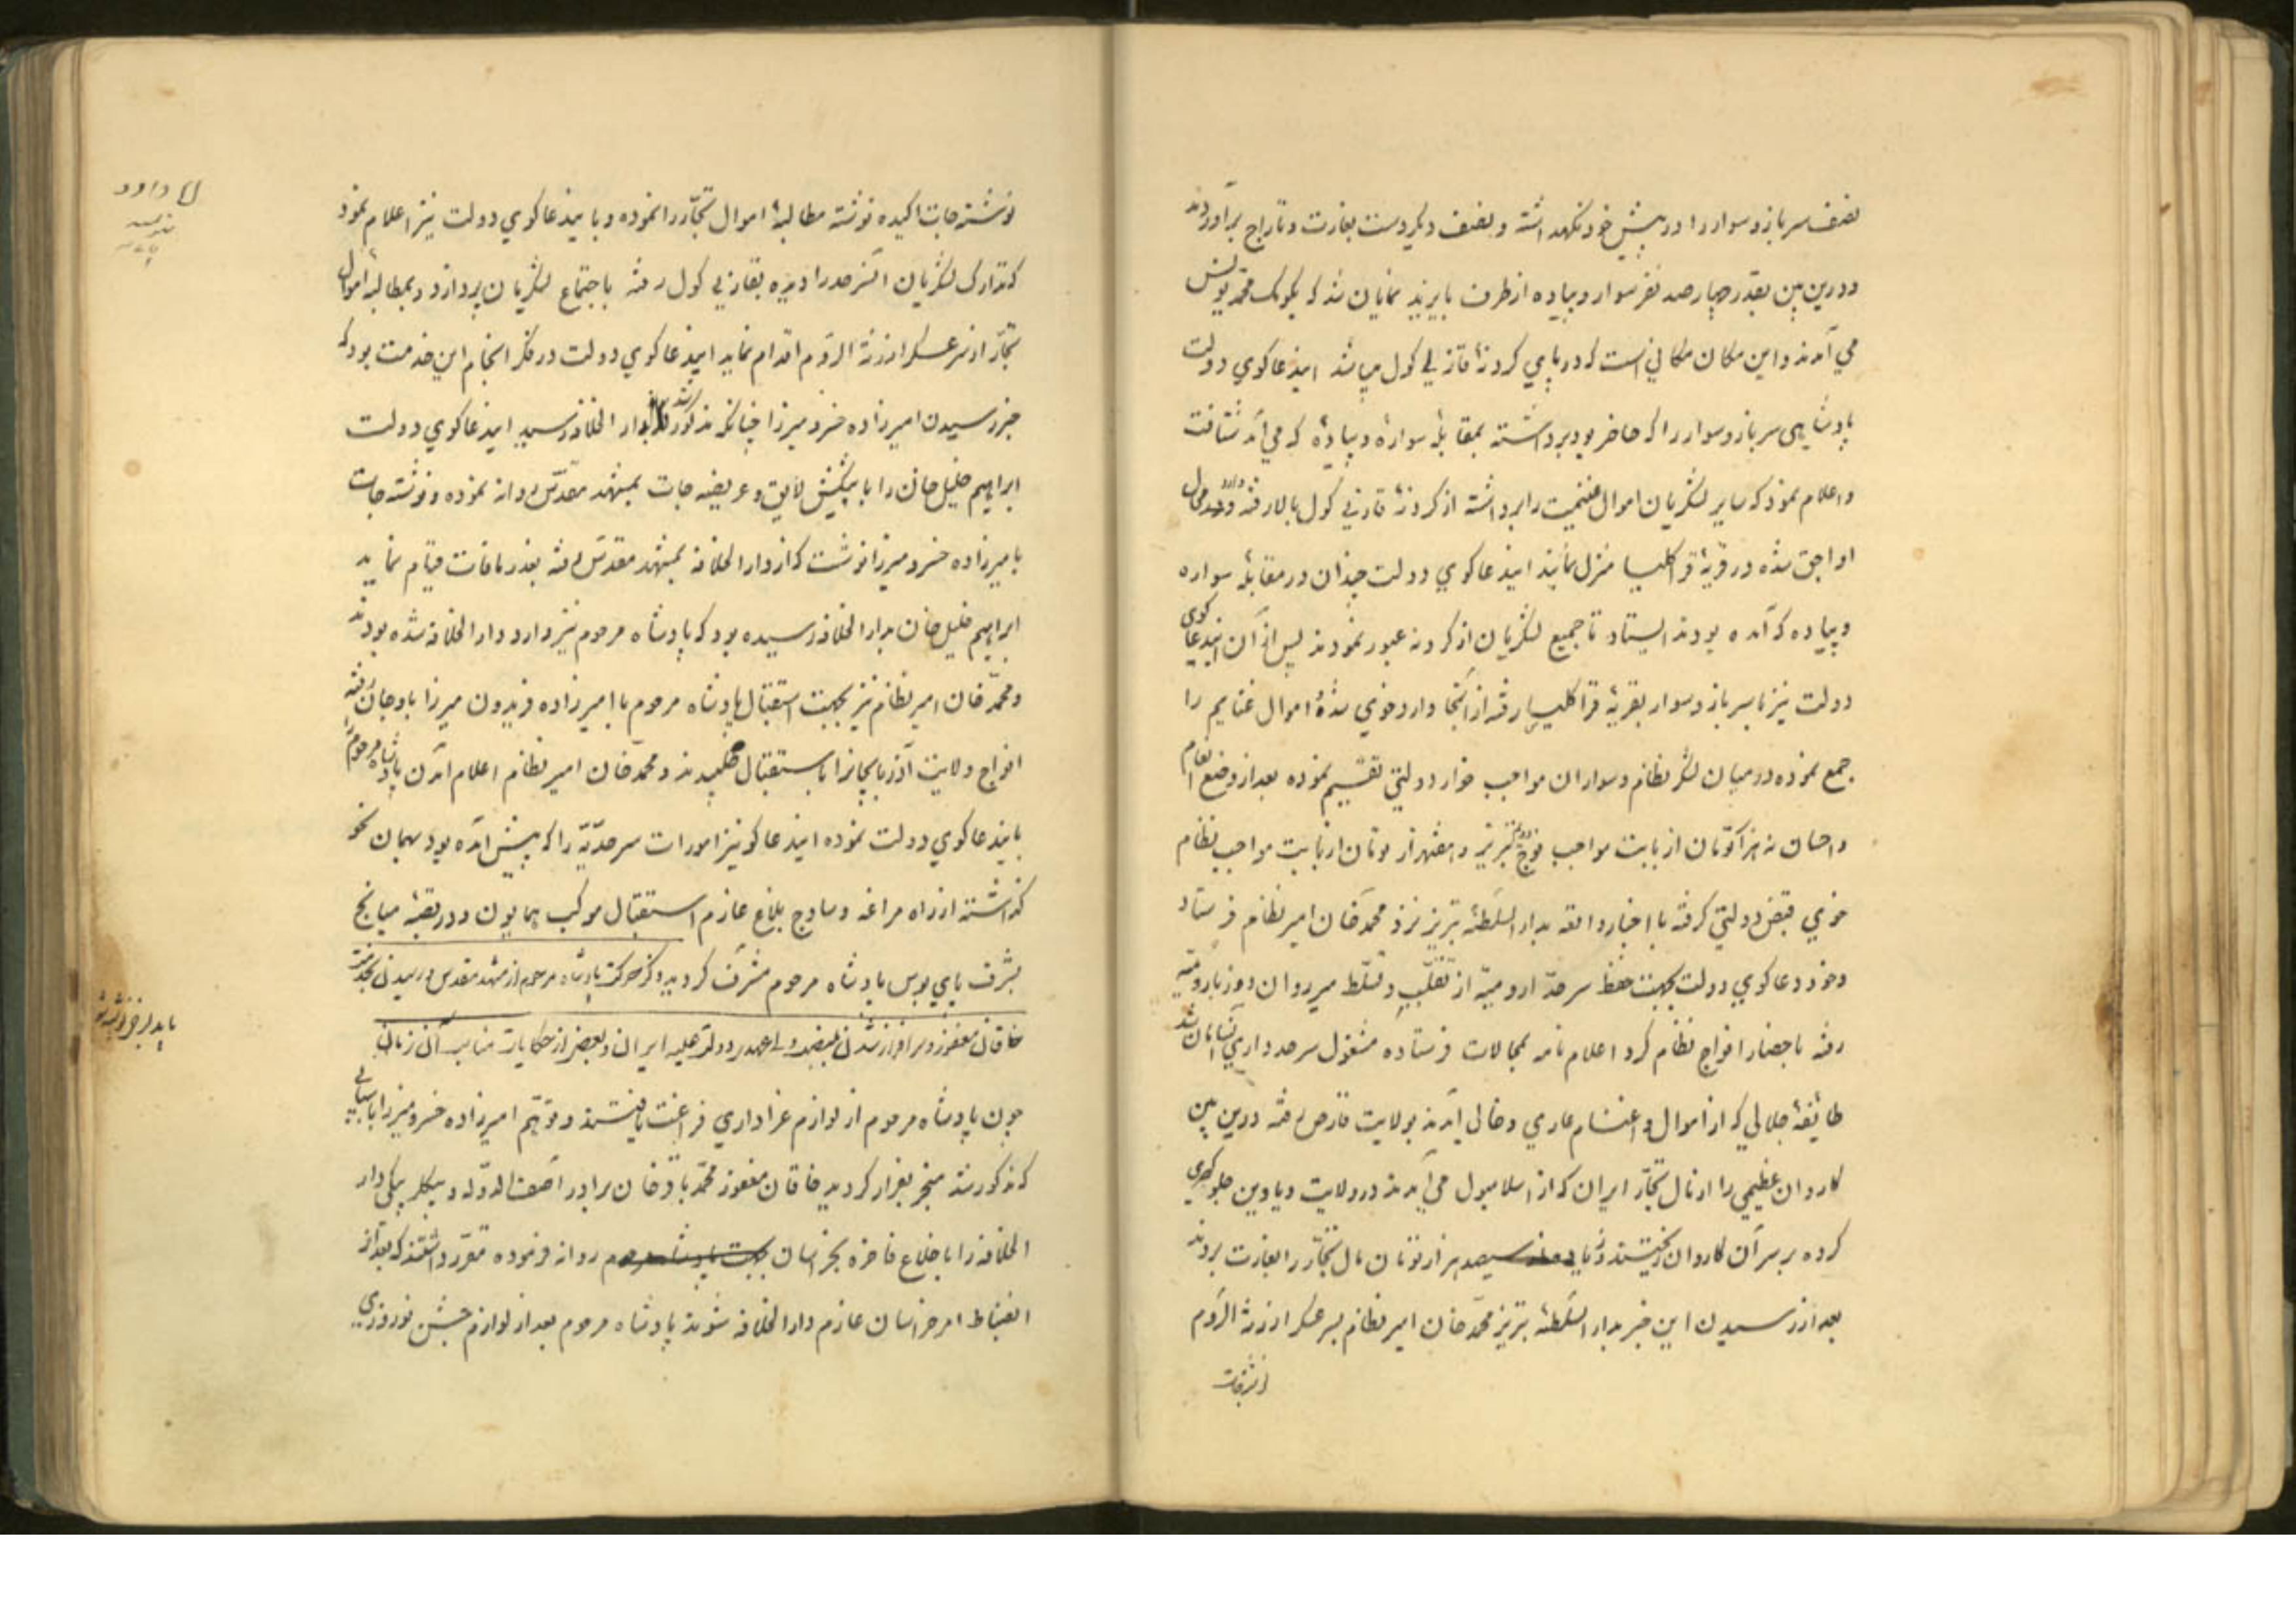 نصف سرباز و سوار را در پیش خود نگهداشته و بنصف دیگر دست بغارت و تاراج برآوردند
و درین بین بقدر چهار صد نفر سوار و پیاده از طرف بایزید نمایان شد که بکومک محمد یونس
می آمدند و این مکان مکانی است که در پای کردنهٔ قازلی کول میباشد ایندعاکوی دولت
پادشاهی سرباز و سوار را که حاضر بود برداشته بمقابلهٔ سواره و پیادهٔ که می آمد شتافت
و اعلام نمود که سایر لشکریان اموال غنیمت را برداشته از کردنهٔ قازلی کول بالا رفته وارد محال
اواجق شده در قریهٔ قراکلیسا منزل نمایند ایندعاکوی دولت چندان در مقابلهٔ سواره
و پیاده که آمده بودند ایستاد تا جمیع لشکریان از کردنه عبور نمودند پس از آن ایندعاکوی
دولت نیز با سرباز و سوار بقریهٔ قراکلیسا رفته از آنجا وارد خوی شده اموال غنایم را
جمع نموده در میان لشکر نظام و سواران مواجب خوار دولتی تقسیم نموده بعد از وضع انعام
و احسان نه هزار تومان از بابت مواجب فوج دویم تبریز و هفتهزار تومان از بابت مواجب نظام
خوی قبض دولتی کرفته با اخبار واقعه بدار السلطنهٔ تبریز نزد محمد خان امیر نظام فرستاد
و خود دعاکوی دولت بجهت حفظ سرحد ارومیه از تغلب و تسلط میر روان دوز بارومیه
رفته باحضار افواج نظام کرد اعلام نامه بمحالات فرستاده مشغول سرحد داری آنسامان شد
طایفهٔ جلالی که از اموال و اغنام عاری و خالی آمدند بولایت قارص رفته درین بین
کاروان عظیمی را از مال تجار ایران که از اسلامبول می آمدند در ولایت دیادین جلوکیری
کرده بر سر آن کاروان ریختند و زیاده از سیصد هزار تومان مال تجار را بغارت بردند
بعد از رسیدن این خبر بدار السلطنهٔ تبریز محمد خان امیر نظام بسر عسکر ارزنة الروم
نوشتجات
نوشته جات اکیده نوشته مطالبهٔ اموال تجار را نموده و باینعاکوی دولت نیز اعلام نمود
که تدارک لشکریان آنسرحد را دیده بقازلی کول رفته باجتماع لشکریان پردازد و بمطالبهٔ اموال
تجار از سر عسکر ارزنة الروم اقدام نماید ایندعاکوی دولت در فکر انجام این خدمت بود که
خبر رسیدن امیرزاده خسرو میرزا چنانکه مذکور شد بدار الخلافه رسید ایندعاکوی دولت
ابراهیم خلیل خان را با پیشکش لایق و عریضه جات بمشهد مقدس روانه نموده و نوشته جات
بامیرزاده خسرو میرزا نوشت که از دار الخلافه بمشهد مقدس رفته بعذر مافات قیام نماید
ابراهیم خلیل خان بدار الخلافه رسیده بود که پادشاه مرحوم نیز وارد دار الخلافه شده بودند
و محمد خان امیر نظام نیز بجهت استقبال پادشاه مرحوم با امیرزاده فریدون میرزا باوجان رفته
افواج ولایت آذربایجانرا باستقبال طلبیدند و محمد خان امیر نظام اعلام آمدن پادشاه مرحوم را
بایندعاکوی دولت نموده ایندعاکو نیز امورات سرحدیه را که پیش آمده بود بهمان نحو
کذاشته از راه مراغه و ساوج بلاغ عازم استقبال موکب همایون و در قصبهٔ میانج
بشرف پای بوس پادشاه مرحوم مشرف کردید و ذکر حرکت پادشاه مرحوم از مشهد مقدس و رسیدن بخدمت
خاقان مغفور و سرافراز شدن بمنصب ولیعهدی دولت علیه ایران و بعضی از حکایات مناسب آن زمان
چون پادشاه مرحوم از لوازم عزاداری فراغت یافتند و توهم امیرزاده خسرو میرزا
که مذکور شد منجر بفرار کردید خاقان مغفور محمد باقر خان برادر آصف الدوله و بیکلر بیکی دار
الخلافه را با خلاع فاخره بخراسان بجهت پادشاه مرحوم روانه فرموده مقرر داشتند که بعد از
انضباط امر خراسان عازم دار الخلافه شوند پادشاه مرحوم بعد از لوازم جشن نوروزی